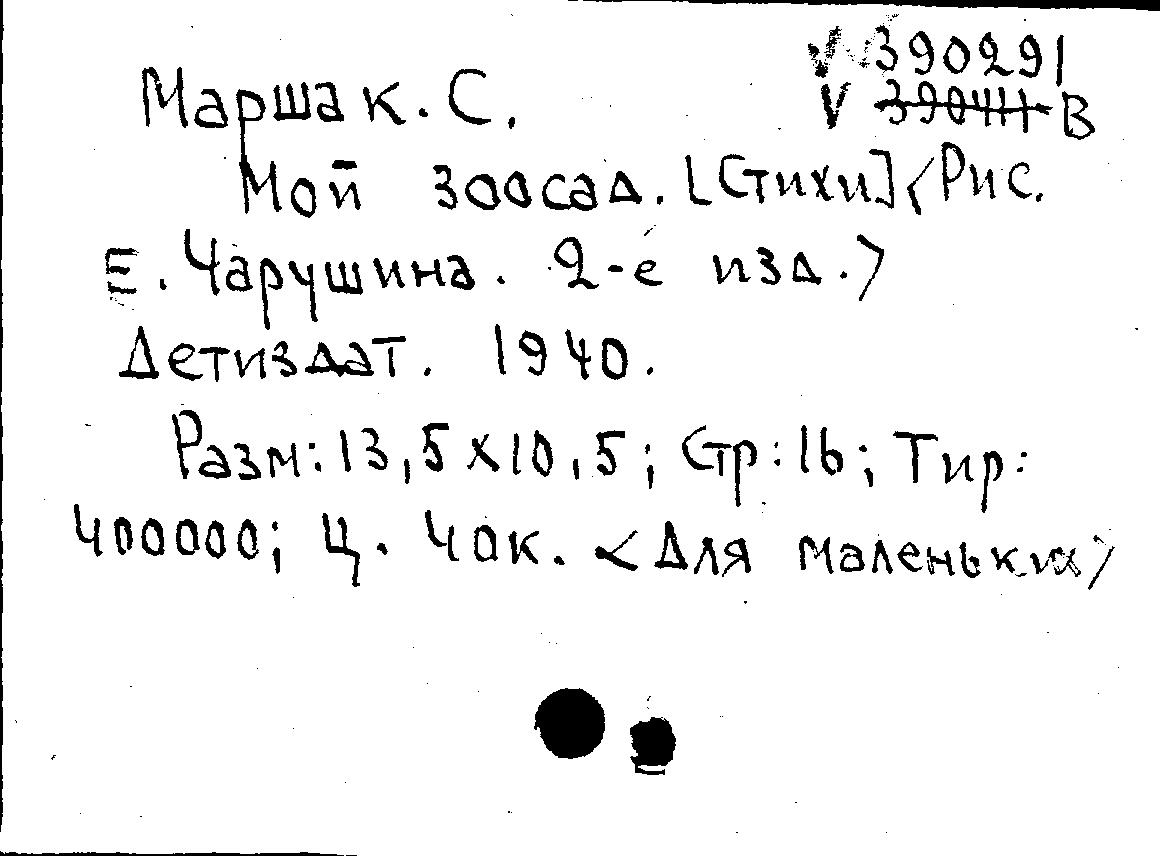 V 390291
Маршак. С. V 390411 В
Мой зоосад. [Стихи] <Рис.
Е. Чарушина. 2-е изд.>
Детиздат. 1940.
Разм: 13,5 х 10,5; Стр: 16; Тир:
400000; Ц. 40к. <Для маленьких>